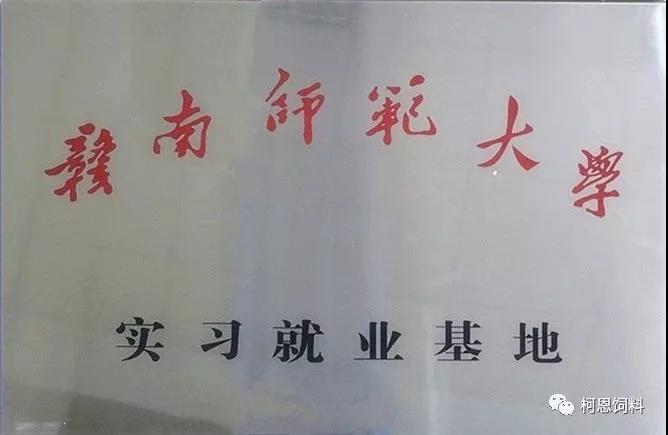 赣南师範大学
实习就业基地
柯恩饲料